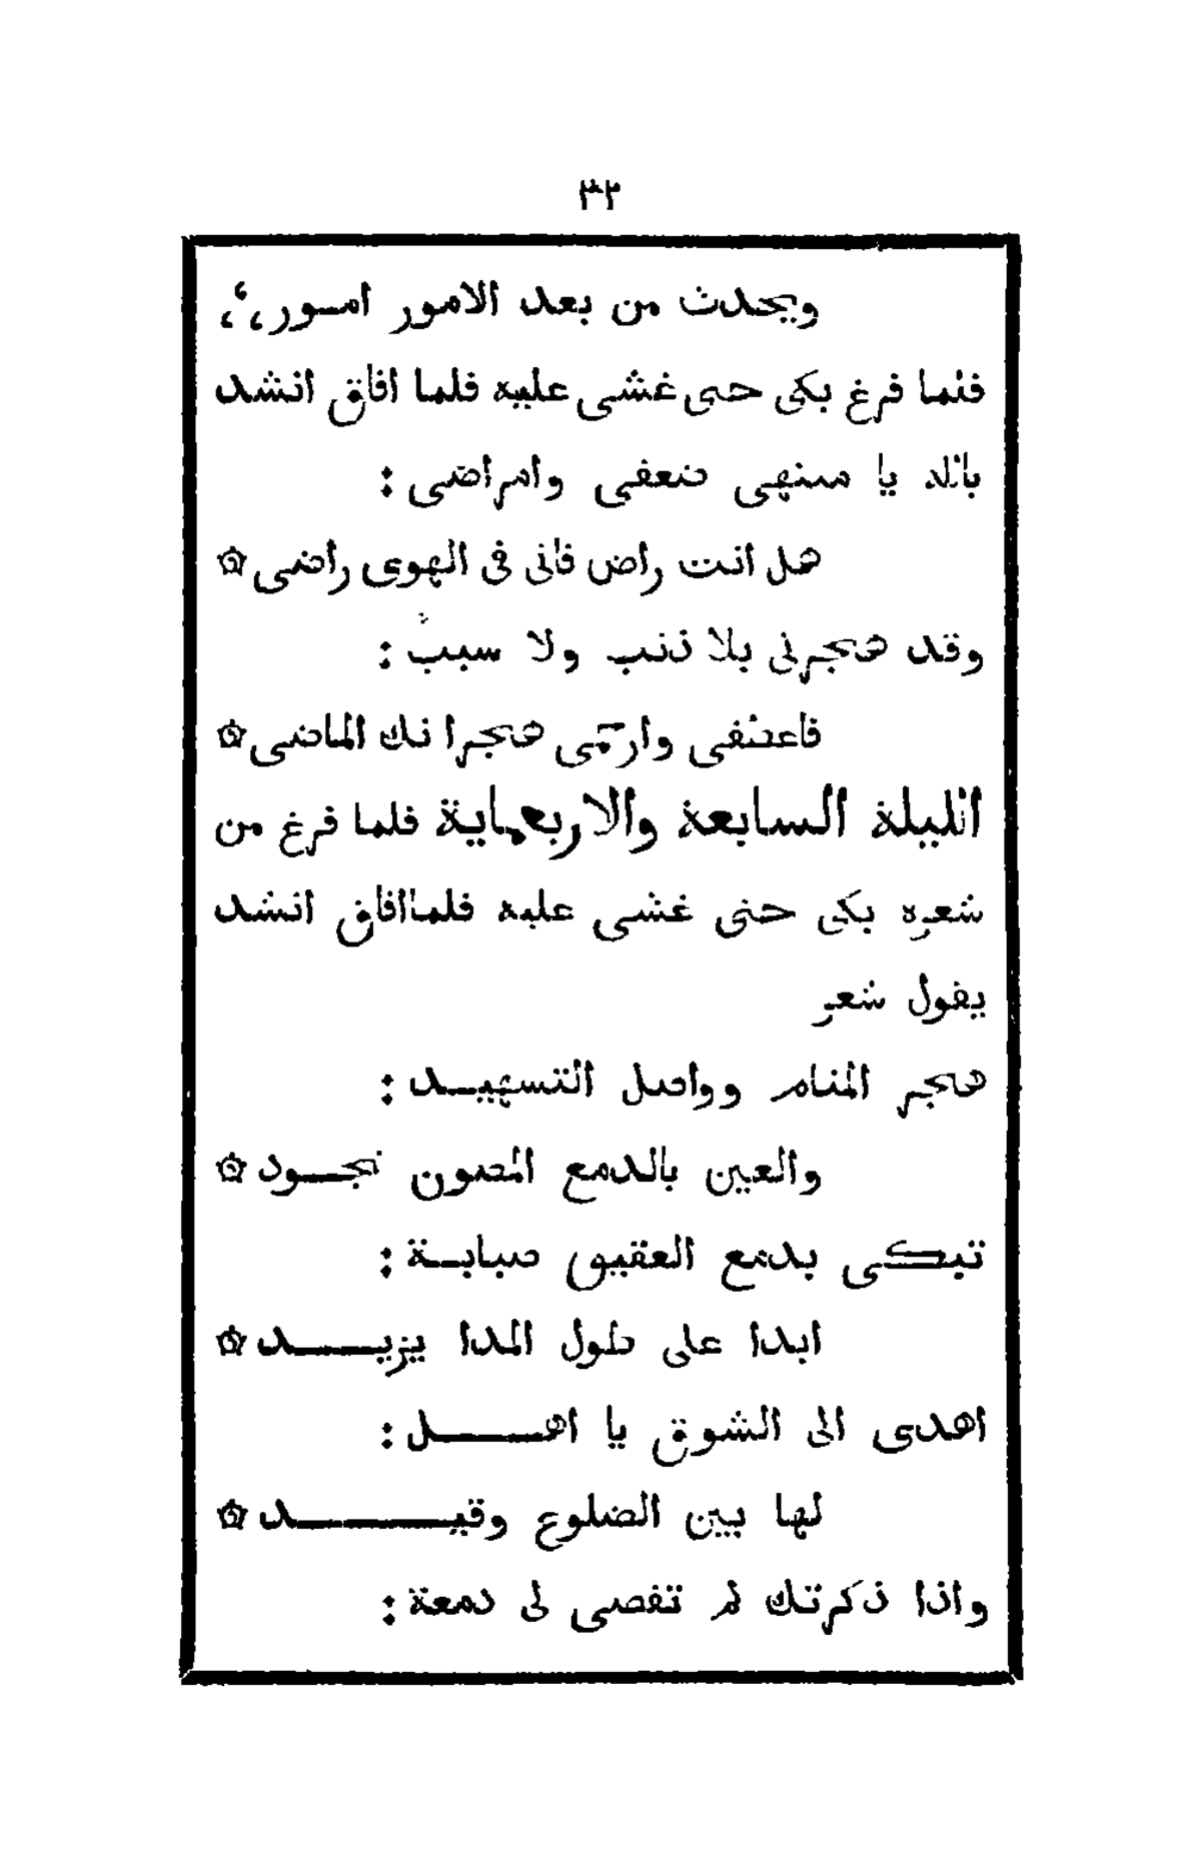 ٣٢
ويحدث من بعد الامور امـور،‘،
فلما فرغ بكى حتى غشى عليه فلما افاق انشد
بالله يا منتهى ضعفى وامراضى :
هل انت راض فانى فى الهوى راضى ۞
وقد هجرنى بلا ذنب ولا سببٌ :
فاعطفى وارحمى هجرا نك الماضى ۞
الليلة السابعة والاربعماية فلما فرغ من
شعره بكى حتى غشى عليه فلماافاق انشد
يقول شعر
هجر المنام وواصل التسهيـد :
والعين بالدمع المصون تجـود ۞
تبكى بدمع العقيق صبابـة :
ابدا على طول المدا يزيـــد ۞
اهدى الى الشوق يا اهـــل :
لها بين الضلوع وقيــــد ۞
واذا ذكرتك لم تفصى لى دمعة :